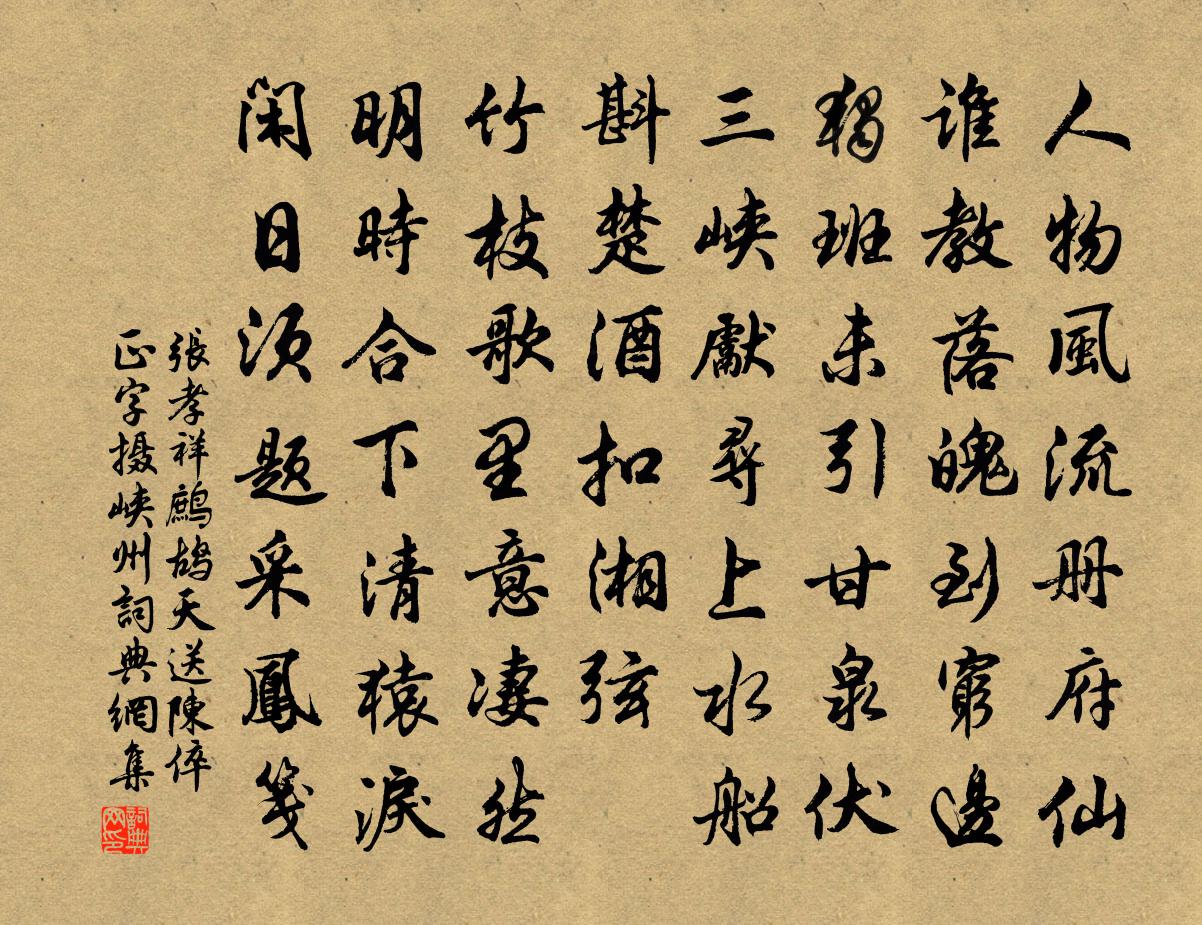 人物風流册府仙
誰教落魄到窮邊
獨班未引甘泉伏
三峽獻尋上水船
斟楚酒扣湘弦
竹枝歌里意凄然
明時合下清猿淚
閑日須題采鳳箋
張孝祥鷓鴣天送陳倅
正字摄峽州詞典網集
詞典网印